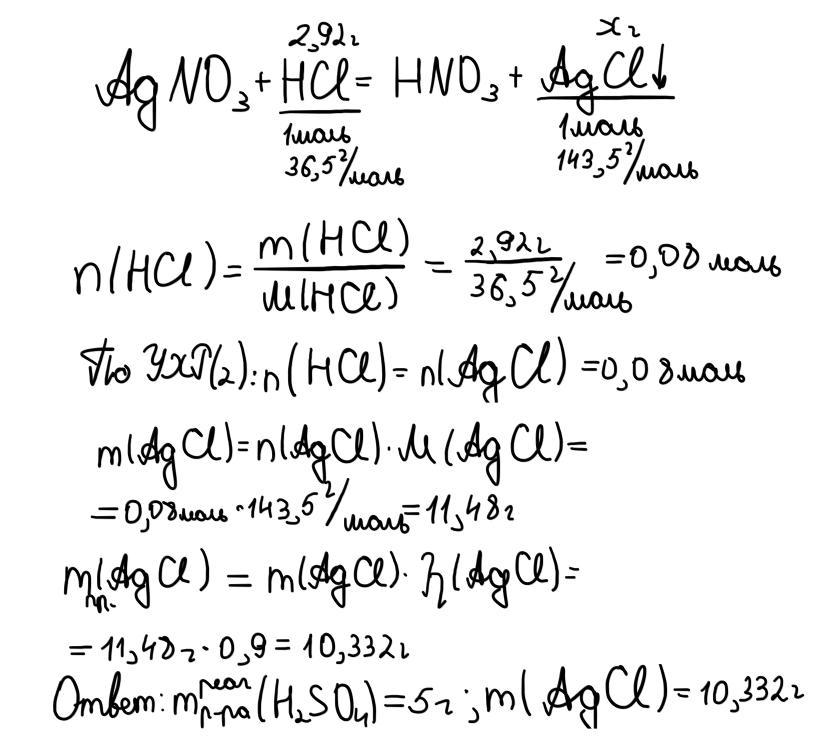 2,92г xг
AgNO₃ + HCl = HNO₃ + AgCl↓
1моль 1моль
36,5 г/моль 143,5 г/моль
n(HCl) = m(HCl)/M(HCl) = 2,92г/36,5 г/моль = 0,08 моль
По УХР(2): n(HCl) = n(AgCl) = 0,08 моль
m(AgCl) = n(AgCl) · M(AgCl) =
= 0,08 моль · 143,5 г/моль = 11,48г
mпр.(AgCl) = m(AgCl) · η(AgCl) =
= 11,48г · 0,9 = 10,332г
Ответ: m р-ра (H₂SO₄) = 5г; m(AgCl) = 10,332г